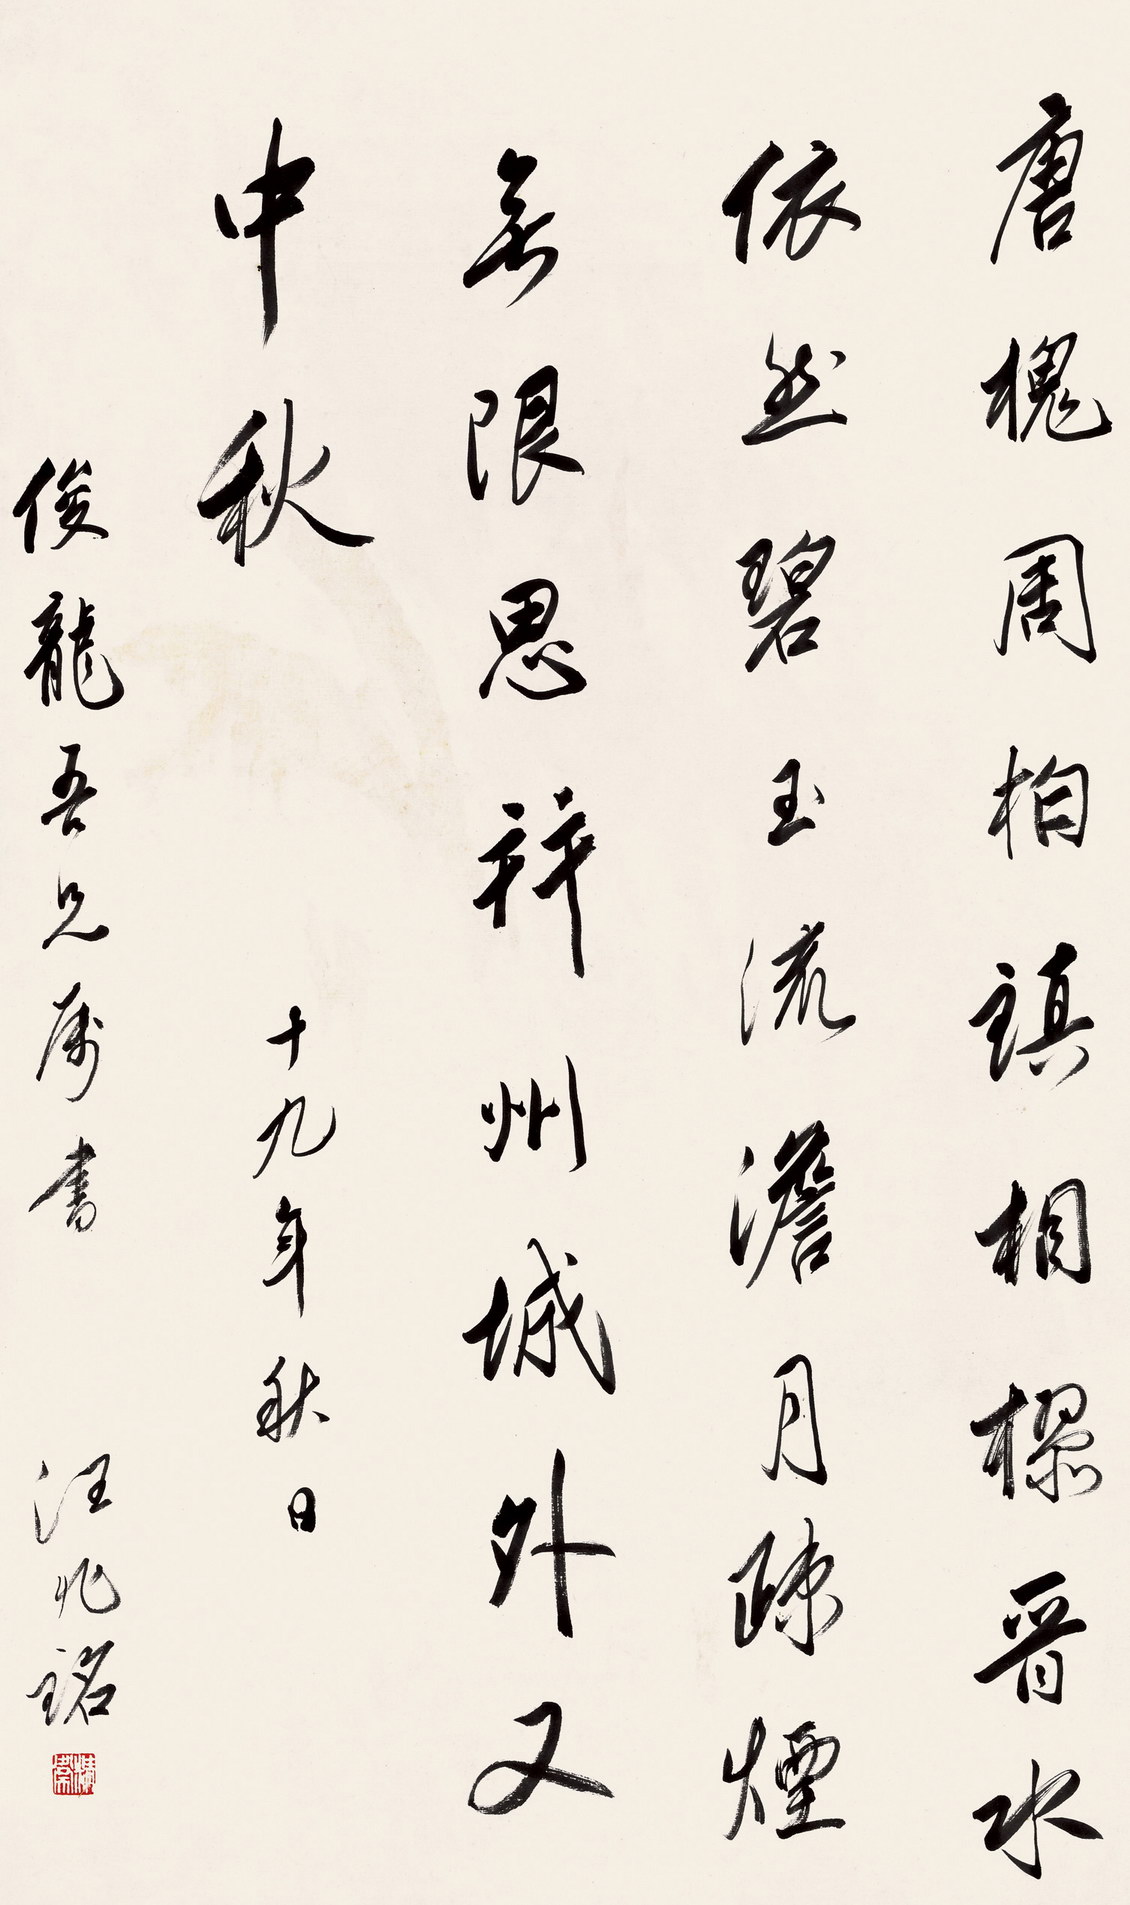 唐槐周柏鎮相樛晉水
依然碧玉流澹月疎煙
無限思祥州城外又
中秋
十九年秋日
俊龍吾兄属書
汪兆銘